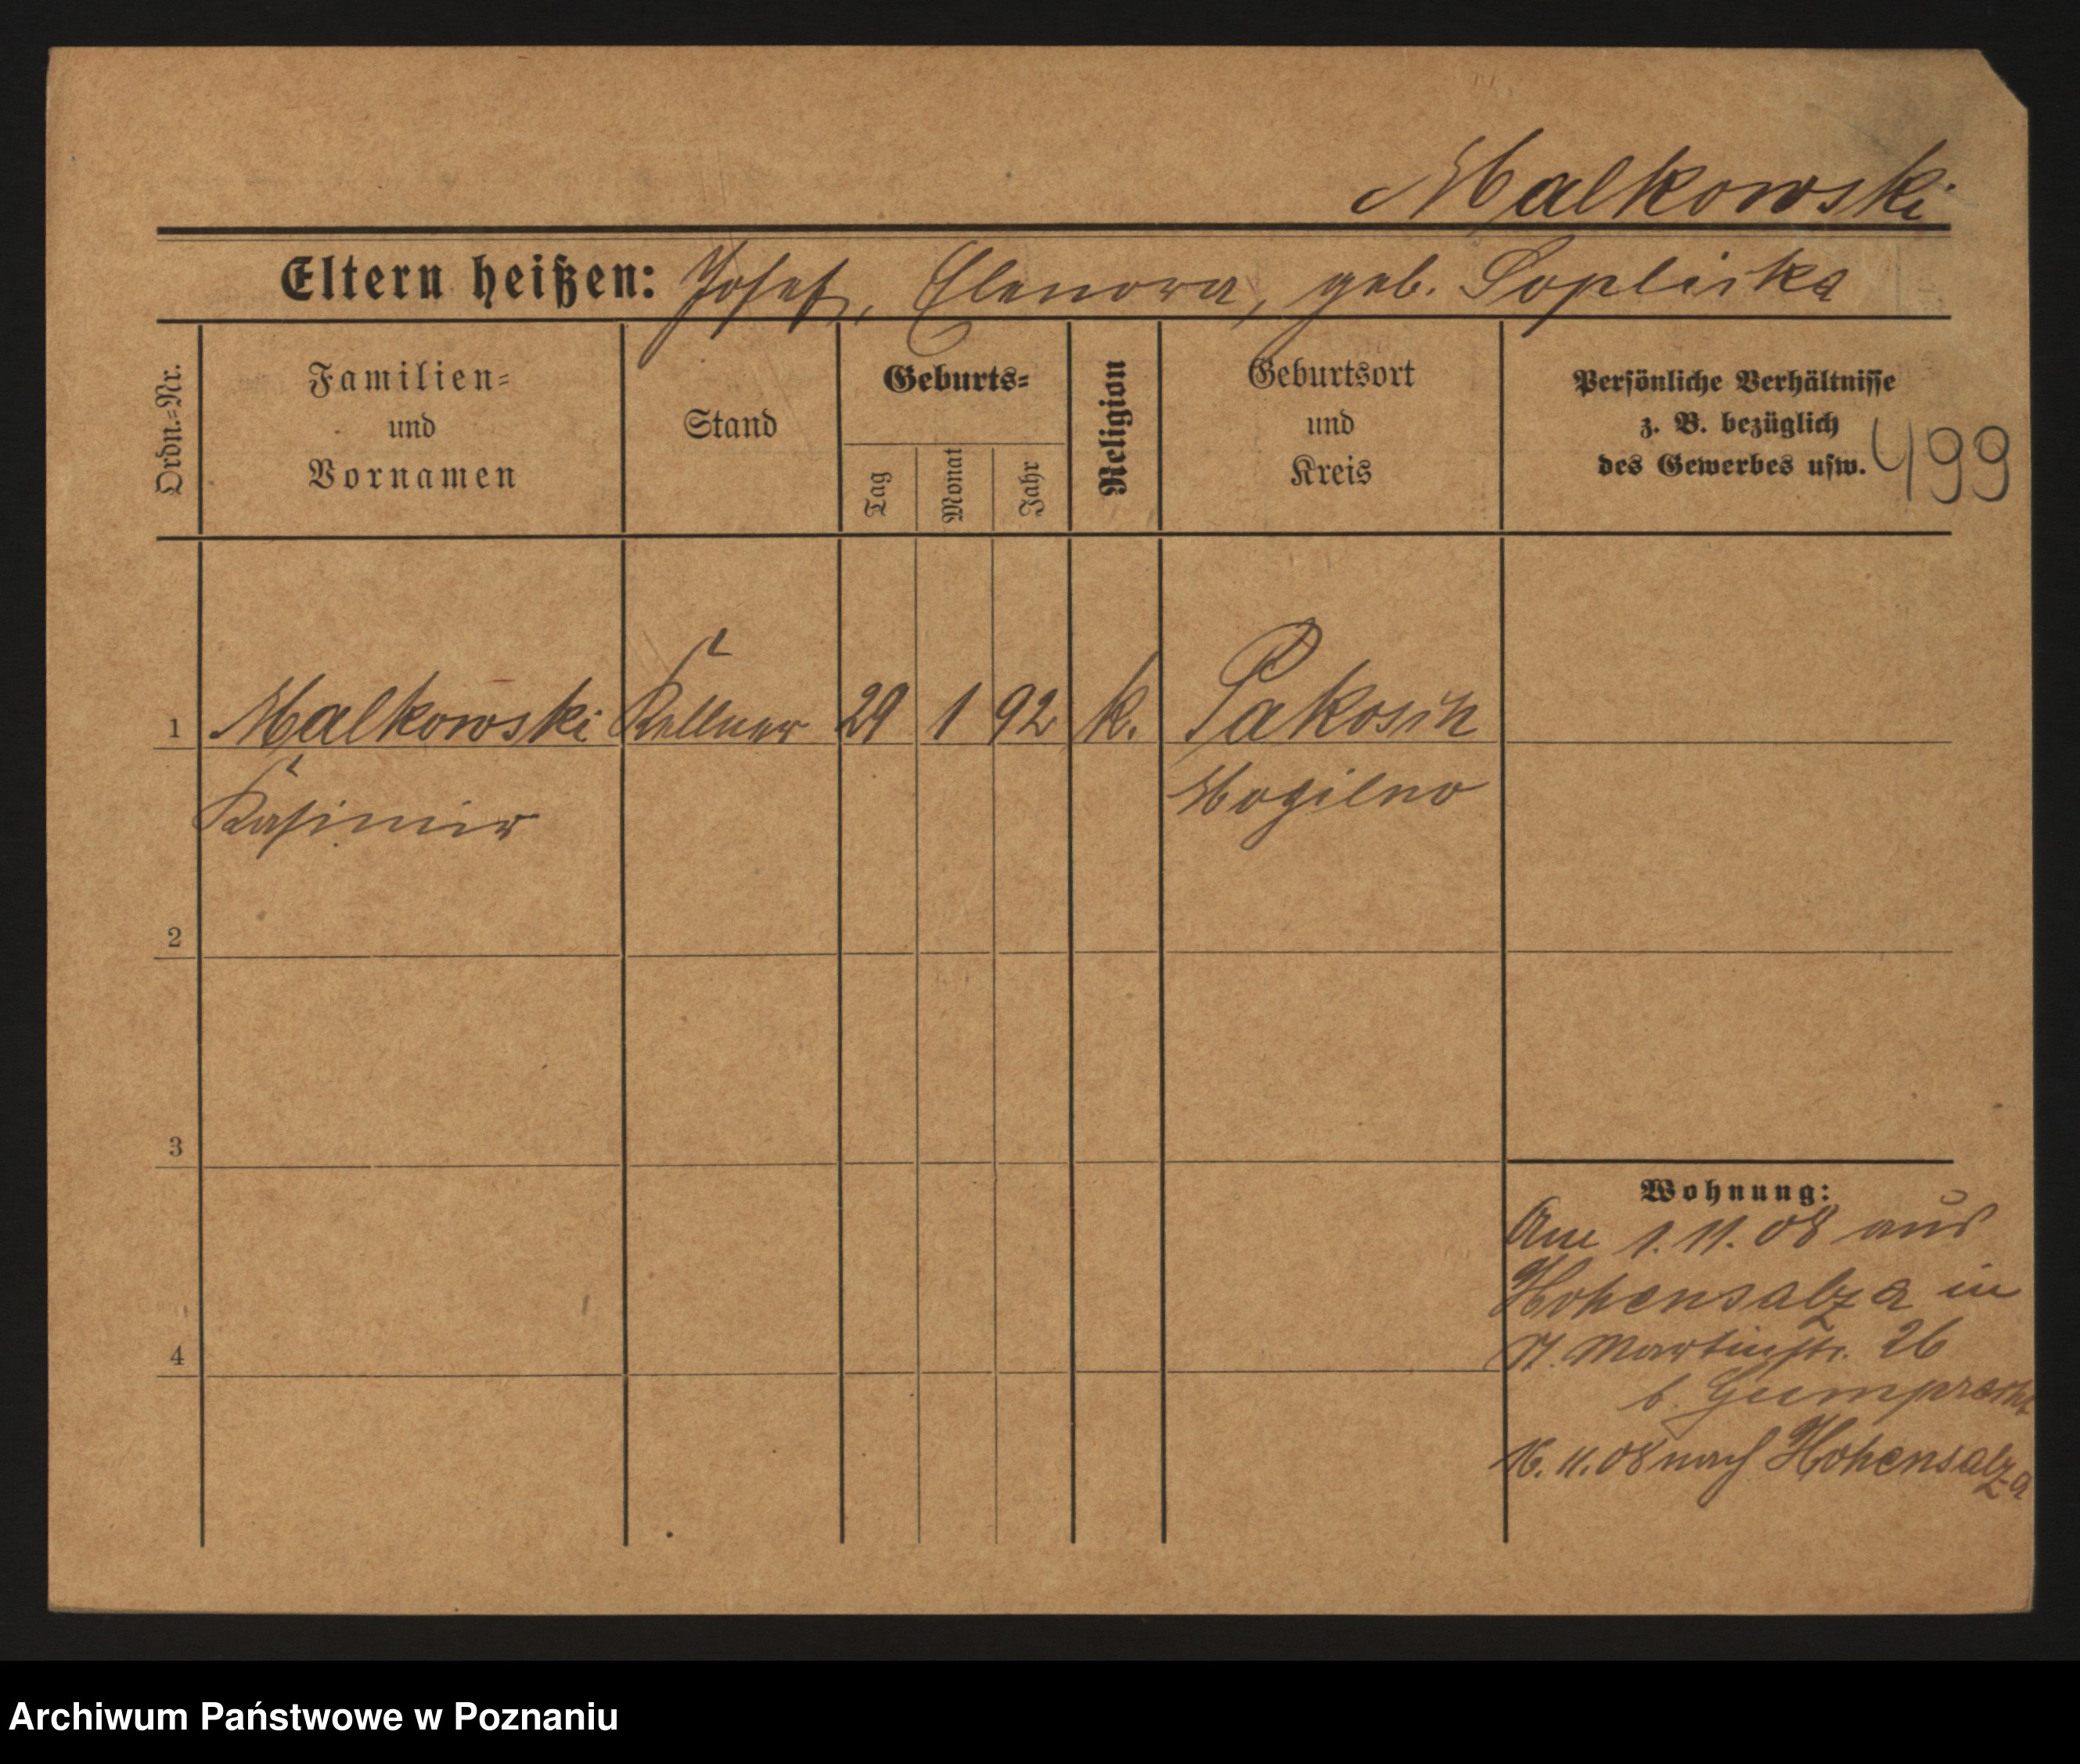 Malkowski
Eltern heißen: Josef, Elenora, geb. Sopliska
Ordn.=Nr.
Familien=
und
Vornamen
Stand
Geburts=
Tag
Monat
Jahr
Religion
Geburtsort
und
Kreis
Persönliche Verhältnisse
z. B. bezüglich
des Gewerbes usw.
499
1 Malkowski Kellner 29 1 92 k. Pakosch
Kasimir Mogilno
2
3
4
Wohnung:
Am 1.11.08 aus
Hohensalza in
St. Martinstr. 26
b. Gumprecht
16.11.08 nach Hohensalza
Archiwum Państwowe w Poznaniu